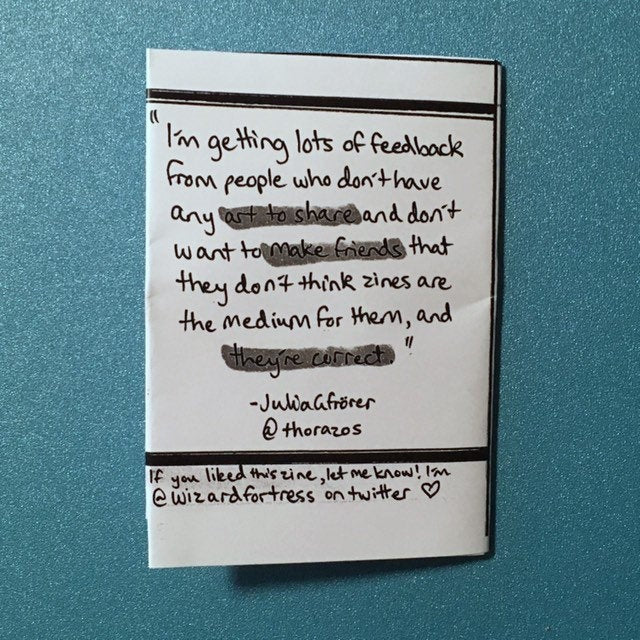 "I'm getting lots of feedback
from people who don't have
any art to share and don't
want to make friends that
they don't think zines are
the medium for them, and
they're correct."
-Julia Gfrörer
@thorazos
If you liked this zine, let me know! I'm
@wizardfortress on twitter ♡